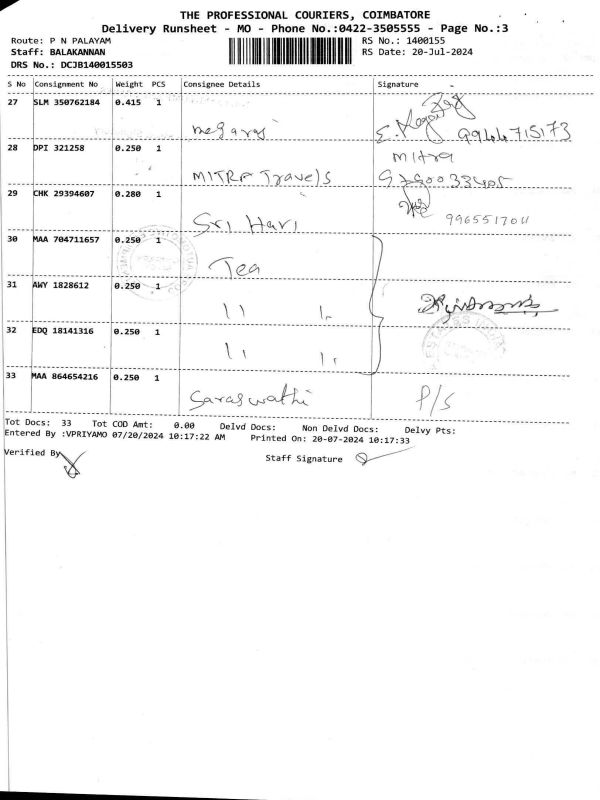 THE PROFESSIONAL COURIERS, COIMBATORE
Delivery Runsheet - MO - Phone No.:0422-3505555 - Page No.:3
Route: P N PALAYAM RS No.: 1400155
Staff: BALAKANNAN RS Date: 20-Jul-2024
DRS No.: DCJB140015503
S No Consignment No Weight PCS Consignee Details Signature
27 SLM 350762184 0.415 1
9944715173
28 DPI 321258 0.250 1 Mitra
MITRA Travels
29 CHK 29394607 0.280 1
Sri Hari
30 MAA 704711657 0.250 1
Tea
31 AWY 1828612 0.250 1
11 11
32 EDQ 18141316 0.250 1
11 11
33 MAA 864654216 0.250 1
Saraswathi P/S
Tot Docs: 33 Tot COD Amt: 0.00 Delvd Docs: Non Delvd Docs: Delvy Pts:
Entered By :VPRIYAMO 07/20/2024 10:17:22 AM Printed On: 20-07-2024 10:17:33
Verified By
Staff Signature